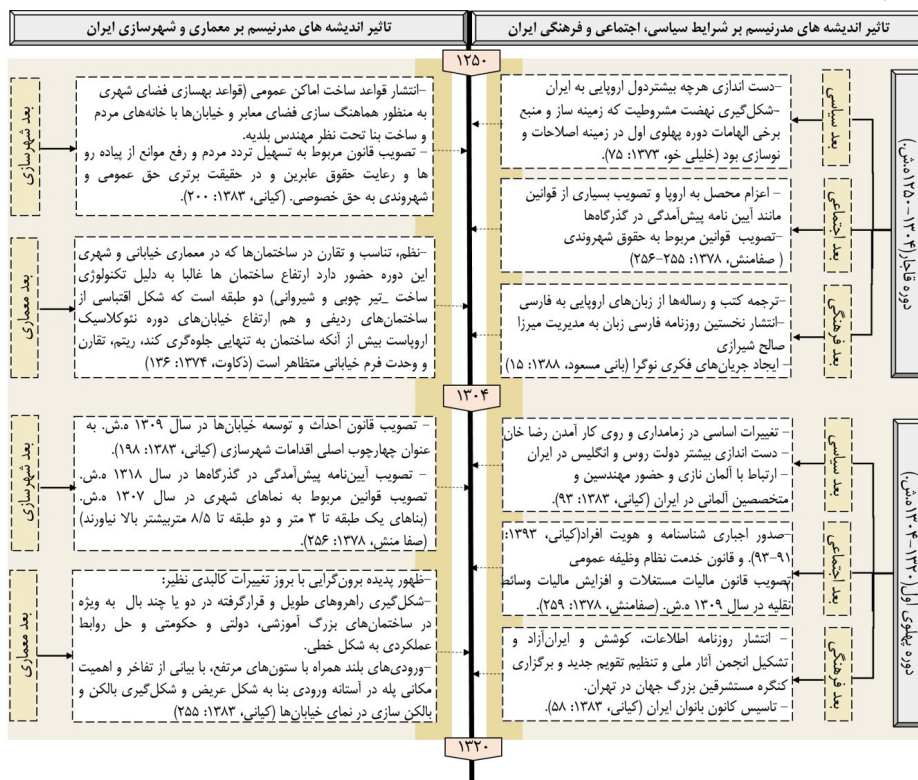 تاثیر اندیشه های مدرنیسم بر شرایط سیاسی، اجتماعی و فرهنگی ایران
تاثیر اندیشه های مدرنیسم بر معماری و شهرسازی ایران
۱۲۵۰
دوره قاجار(۱۳۰۴-۱۲۵۰ه.ش.)
بعد سیاسی
-دست اندازی هرچه بیشتردول اروپایی به ایران
-شکل‌گیری نهضت مشروطیت که زمینه ساز و منبع
برخی الهامات دوره پهلوی اول در زمینه اصلاحات و
نوسازی بود (خلیلی خو، ۱۳۷۳: ۷۵).
بعد اجتماعی
- اعزام محصل به اروپا و تصویب بسیاری از قوانین
مانند آیین نامه پیش‌آمدگی در گذرگاه‌ها
-تصویب قوانین مربوط به حقوق شهروندی
( صفامنش، ۱۳۷۸: ۲۵۵-۲۵۶)
بعد فرهنگی
-ترجمه کتب و رساله‌ها از زبان‌های اروپایی به فارسی
-انتشار نخستین روزنامه فارسی زبان به مدیریت میرزا
صالح شیرازی
- ایجاد جریان‌های فکری نوگرا (بانی مسعود، ۱۳۸۸: ۱۵)
بعد شهرسازی
-انتشار قواعد ساخت اماکن عمومی (قواعد بهسازی فضای شهری
به منظور هماهنگ سازی فضای معابر و خیابان‌ها با خانه‌های مردم
و ساخت بنا تحت نظر مهندس بلدیه.
- تصویب قانون مربوط به تسهیل تردد مردم و رفع موانع از پیاده رو
ها و رعایت حقوق عابرین و در حقیقت برتری حق عمومی و
شهروندی به حق خصوصی. (کیانی، ۱۳۸۳: ۲۰۰).
بعد معماری
-نظم، تناسب و تقارن در ساختمان‌ها که در معماری خیابانی و شهری
این دوره حضور دارد ارتفاع ساختمان ها غالبا به دلیل تکنولوژی
ساخت _تیر چوبی و شیروانی) دو طبقه است که شکل اقتباسی از
ساختمان‌های ردیفی و هم ارتفاع خیابان‌های دوره نئوکلاسیک
اروپاست بیش از آنکه ساختمان به تنهایی جلوه‌گری کند، ریتم، تقارن
و وحدت فرم خیابانی متظاهر است (ذکاوت، ۱۳۷۴: ۱۳۶)
۱۳۰۴
دوره پهلوی اول(۱۳۲۰-۱۳۰۴ه.ش.)
بعد سیاسی
- تغییرات اساسی در زمامداری و روی کار آمدن رضا خان
- دست اندازی بیشتر دولت روس و انگلیس در ایران
- ارتباط با آلمان نازی و حضور مهندسین و
متخصصین آلمانی در ایران (کیانی، ۱۳۸۳: ۹۳).
بعد اجتماعی
-صدور اجباری شناسنامه و هویت افراد(کیانی، ۱۳۹۳:
۹۱-۹۳). و قانون خدمت نظام وظیفه عمومی
تصویب قانون مالیات مستغلات و افزایش مالیات وسائط
نقلیه در سال ۱۳۰۹ ه.ش. (صفامنش، ۱۳۷۸: ۲۵۹).
بعد فرهنگی
- انتشار روزنامه اطلاعات، کوشش و ایران‌آزاد و
تشکیل انجمن آثار ملی و تنظیم تقویم جدید و برگزاری
کنگره مستشرقین بزرگ جهان در تهران.
- تاسیس کانون بانوان ایران (کیانی، ۱۳۸۳: ۵۸).
بعد شهرسازی
- تصویب قانون احداث و توسعه خیابان‌ها در سال ۱۳۰۹ ه.ش. به
عنوان چهارچوب اصلی اقدامات شهرسازی (کیانی، ۱۳۸۳: ۱۹۸).
- تصویب آیین‌نامه پیش‌آمدگی در گذرگاه‌ها در سال ۱۳۱۸ ه.ش.
تصویب قوانین مربوط به نماهای شهری در سال ۱۳۰۷ ه.ش.
(بناهای یک طبقه تا ۳ متر و دو طبقه تا ۸/۵ متربیشتر بالا نیاورند)
(صفا منش، ۱۳۷۸: ۲۵۶).
بعد معماری
-ظهور پدیده برون‌گرایی با بروز تغییرات کالبدی نظیر:
-شکل‌گیری راهروهای طویل و قرارگرفته در دو یا چند بال به ویژه
در ساختمان‌های بزرگ آموزشی، دولتی و حکومتی و حل روابط
عملکردی به شکل خطی.
-ورودی‌های بلند همراه با ستون‌های مرتفع، با بیانی از تفاخر و اهمیت
مکانی پله در آستانه ورودی بنا به شکل عریض و شکل‌گیری بالکن و
بالکن سازی در نمای خیابان‌ها (کیانی، ۱۳۸۳: ۲۵۵)
۱۳۲۰